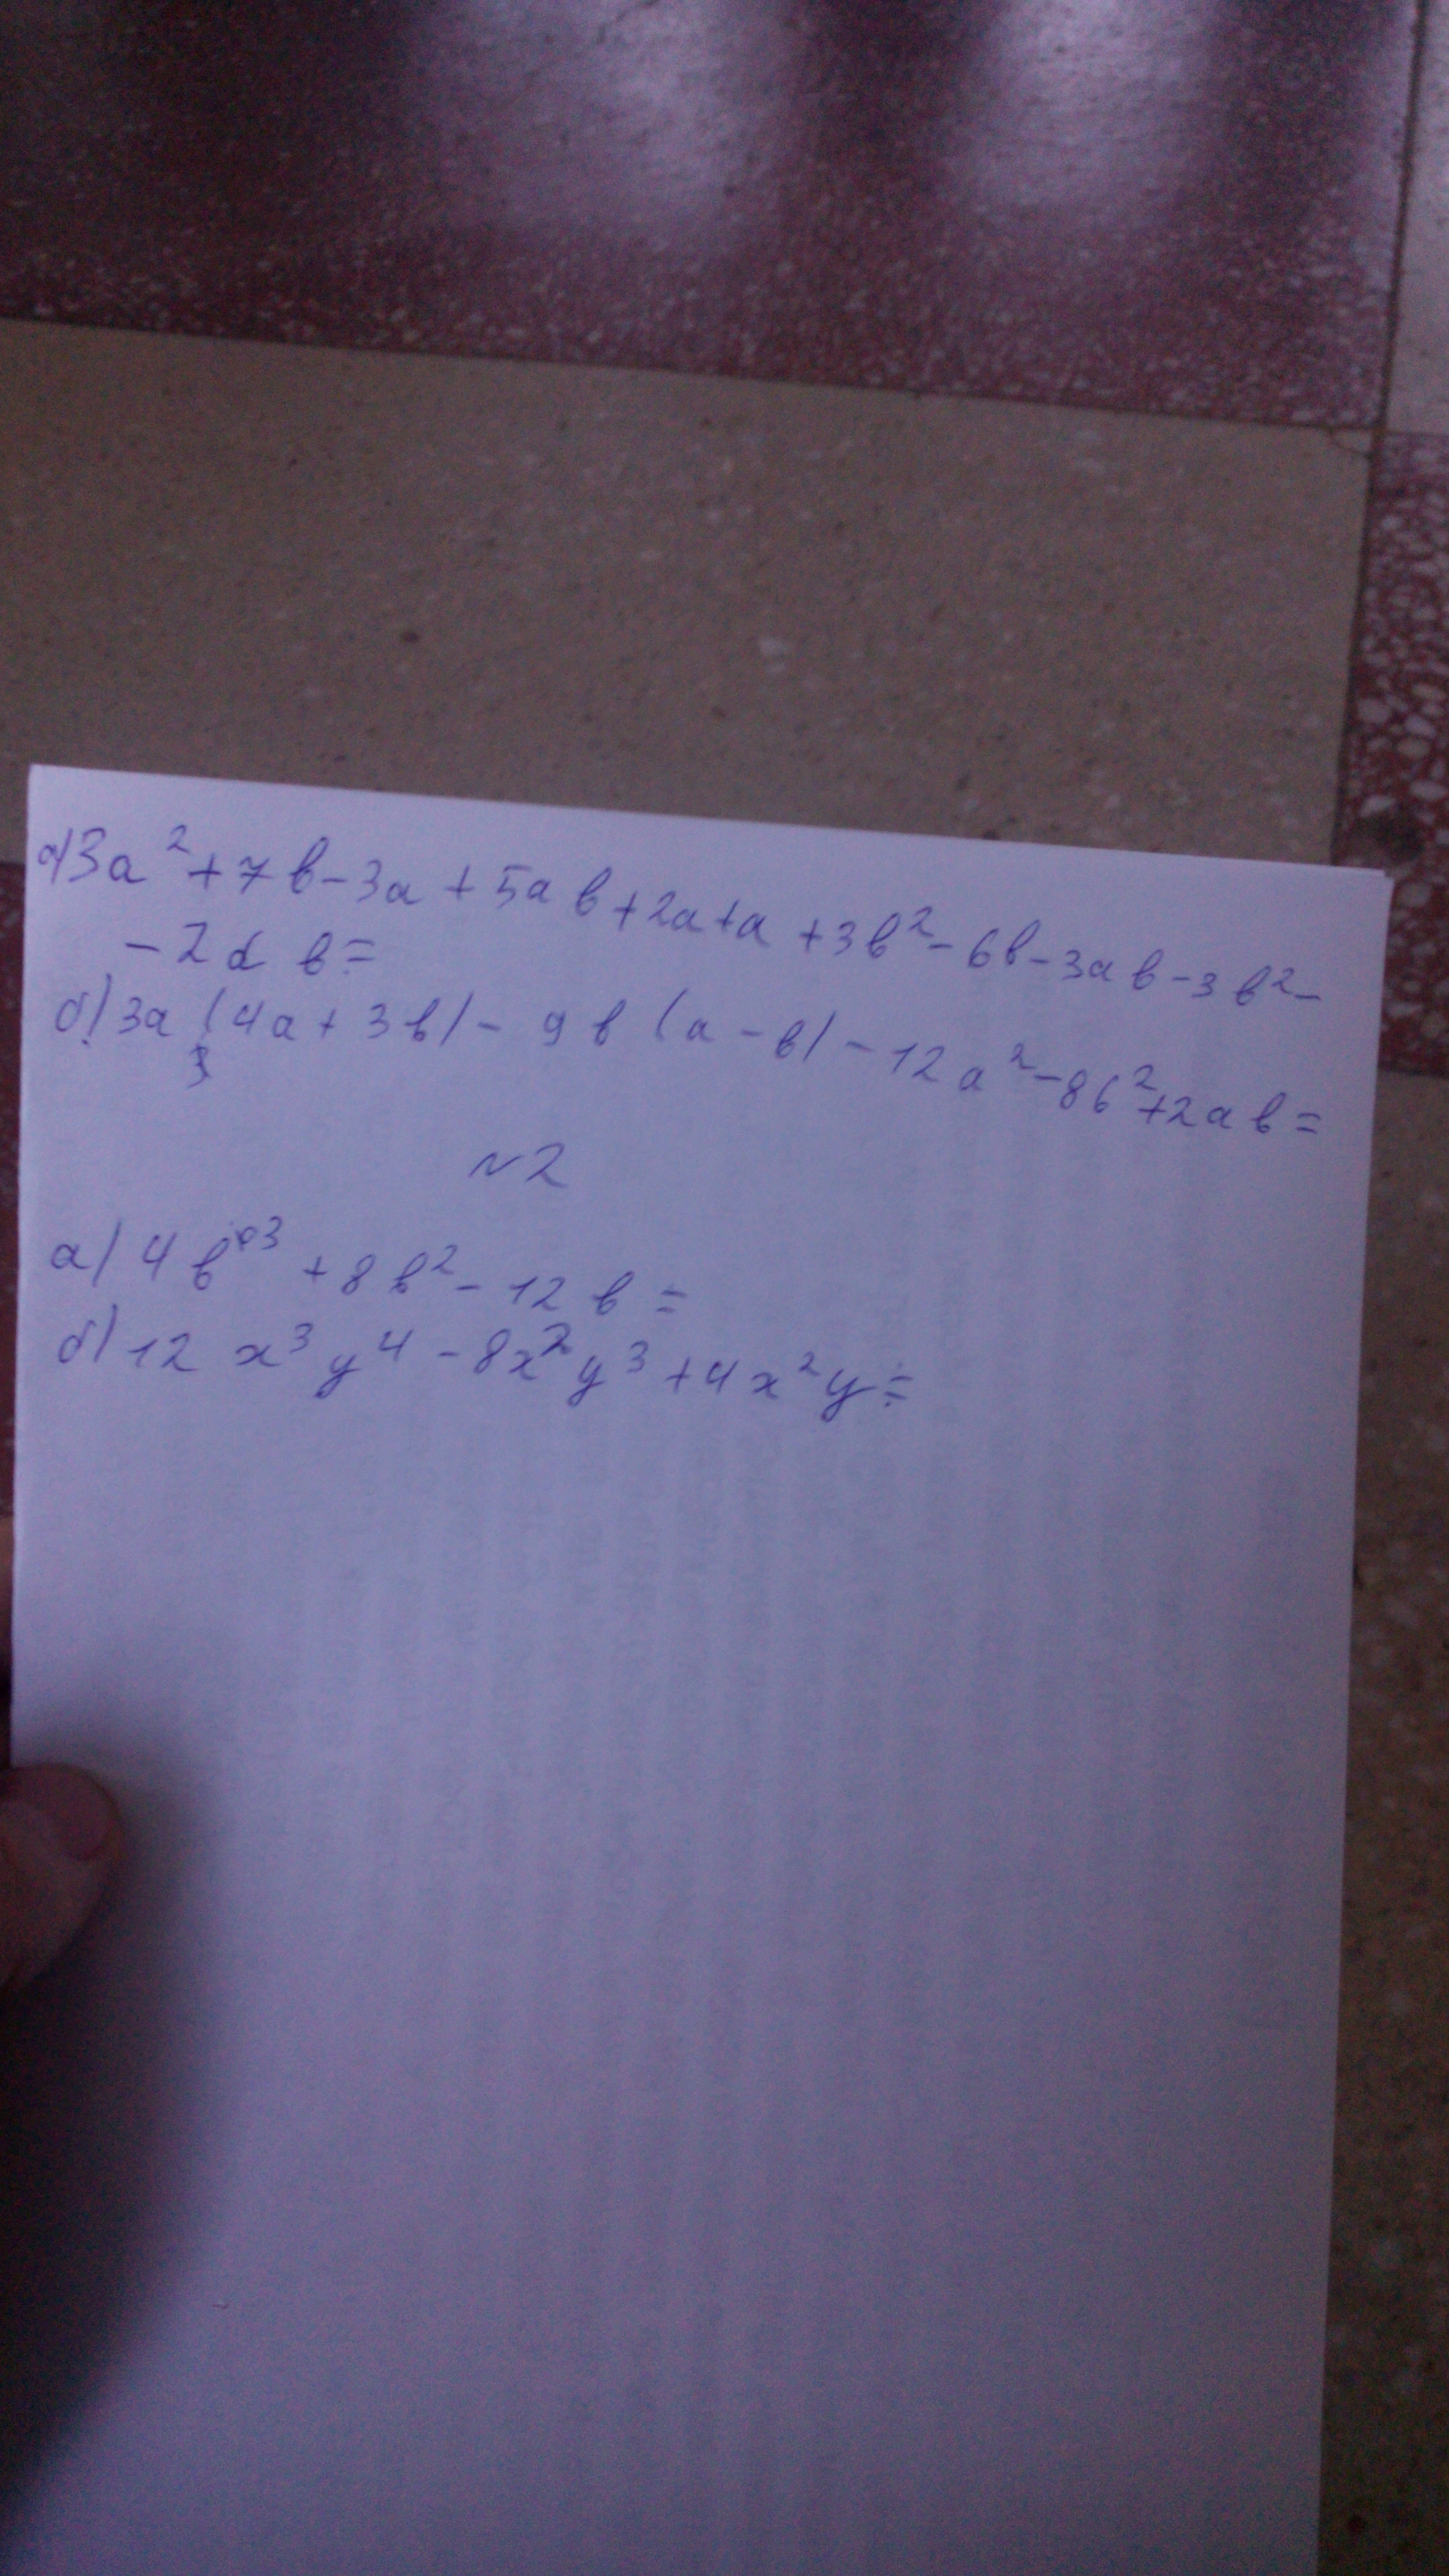 а) 3a² + 7b - 3a + 5ab + 2a + a + 3b² - 6b - 3ab - 3b² -
- 2ab =
б) 3a (4a + 3b) - 9b (a - b) - 12a² - 8b² + 2ab =
№2
а) 4b³ + 8b² - 12b =
б) 12x³y⁴ - 8x²y³ + 4x²y =